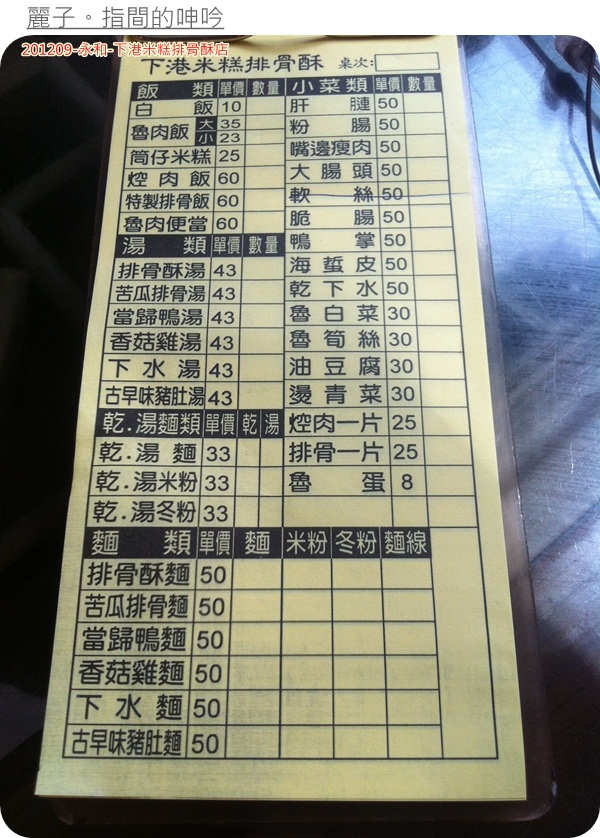 麗子。指間的呻吟
201209-永和-下港米糕排骨酥店
下港米糕排骨酥 桌次:
飯類 單價 數量 小菜類 單價 數量
白飯 10 肝腱 50
魯肉飯 大 35 粉腸 50
小 23 嘴邊瘦肉 50
筒仔米糕 25 大腸頭 50
焢肉飯 60 軟絲 50
特製排骨飯 60 脆腸 50
魯肉便當 60 鴨掌 50
湯類 單價 數量 海蜇皮 50
排骨酥湯 43 乾下水 50
苦瓜排骨湯 43 魯白菜 30
當歸鴨湯 43 魯筍絲 30
香菇雞湯 43 油豆腐 30
下水湯 43 燙青菜 30
古早味豬肚湯 43
乾.湯麵類 單價 乾 湯 焢肉一片 25
乾.湯麵 33 排骨一片 25
乾.湯米粉 33 魯蛋 8
乾.湯冬粉 33
麵類 單價 麵 米粉 冬粉 麵線
排骨酥麵 50
苦瓜排骨麵 50
當歸鴨麵 50
香菇雞麵 50
下水麵 50
古早味豬肚麵 50